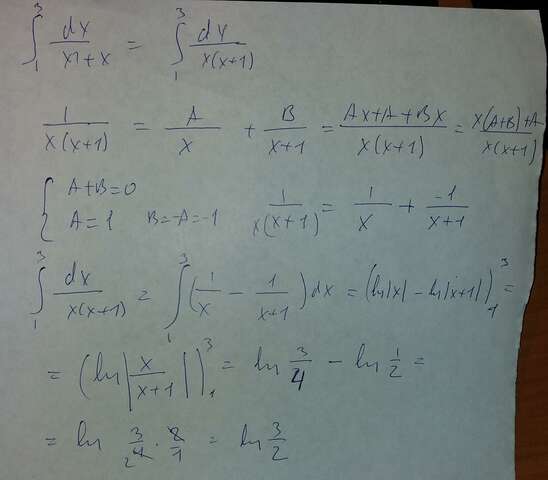 ∫₁³ dx/(x² + x) = ∫₁³ dx/(x(x+1))
1/(x(x+1)) = A/x + B/(x+1) = (Ax+A+Bx)/(x(x+1)) = (x(A+B)+A)/(x(x+1))
{ A+B=0
A=1 B=-A=-1 1/(x(x+1)) = 1/x + -1/(x+1)
∫₁³ dx/(x(x+1)) = ∫₁³ (1/x - 1/(x+1)) dx = (ln|x| - ln|x+1|)₁³ =
= (ln|x/(x+1)|)₁³ = ln 3/4 - ln 1/2 =
= ln 3/4 · 2/1 = ln 3/2